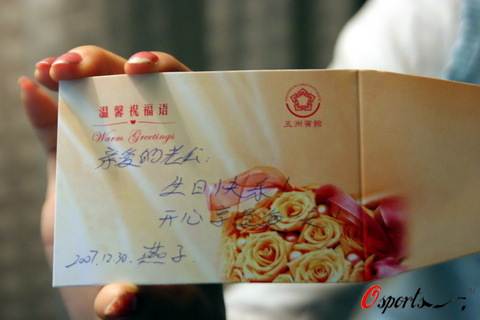 温馨祝福语
Warm Greetings
五洲宾馆
亲爱的老公：
生日快乐！
开心每一天！
2007.12.30. 燕子
Osports